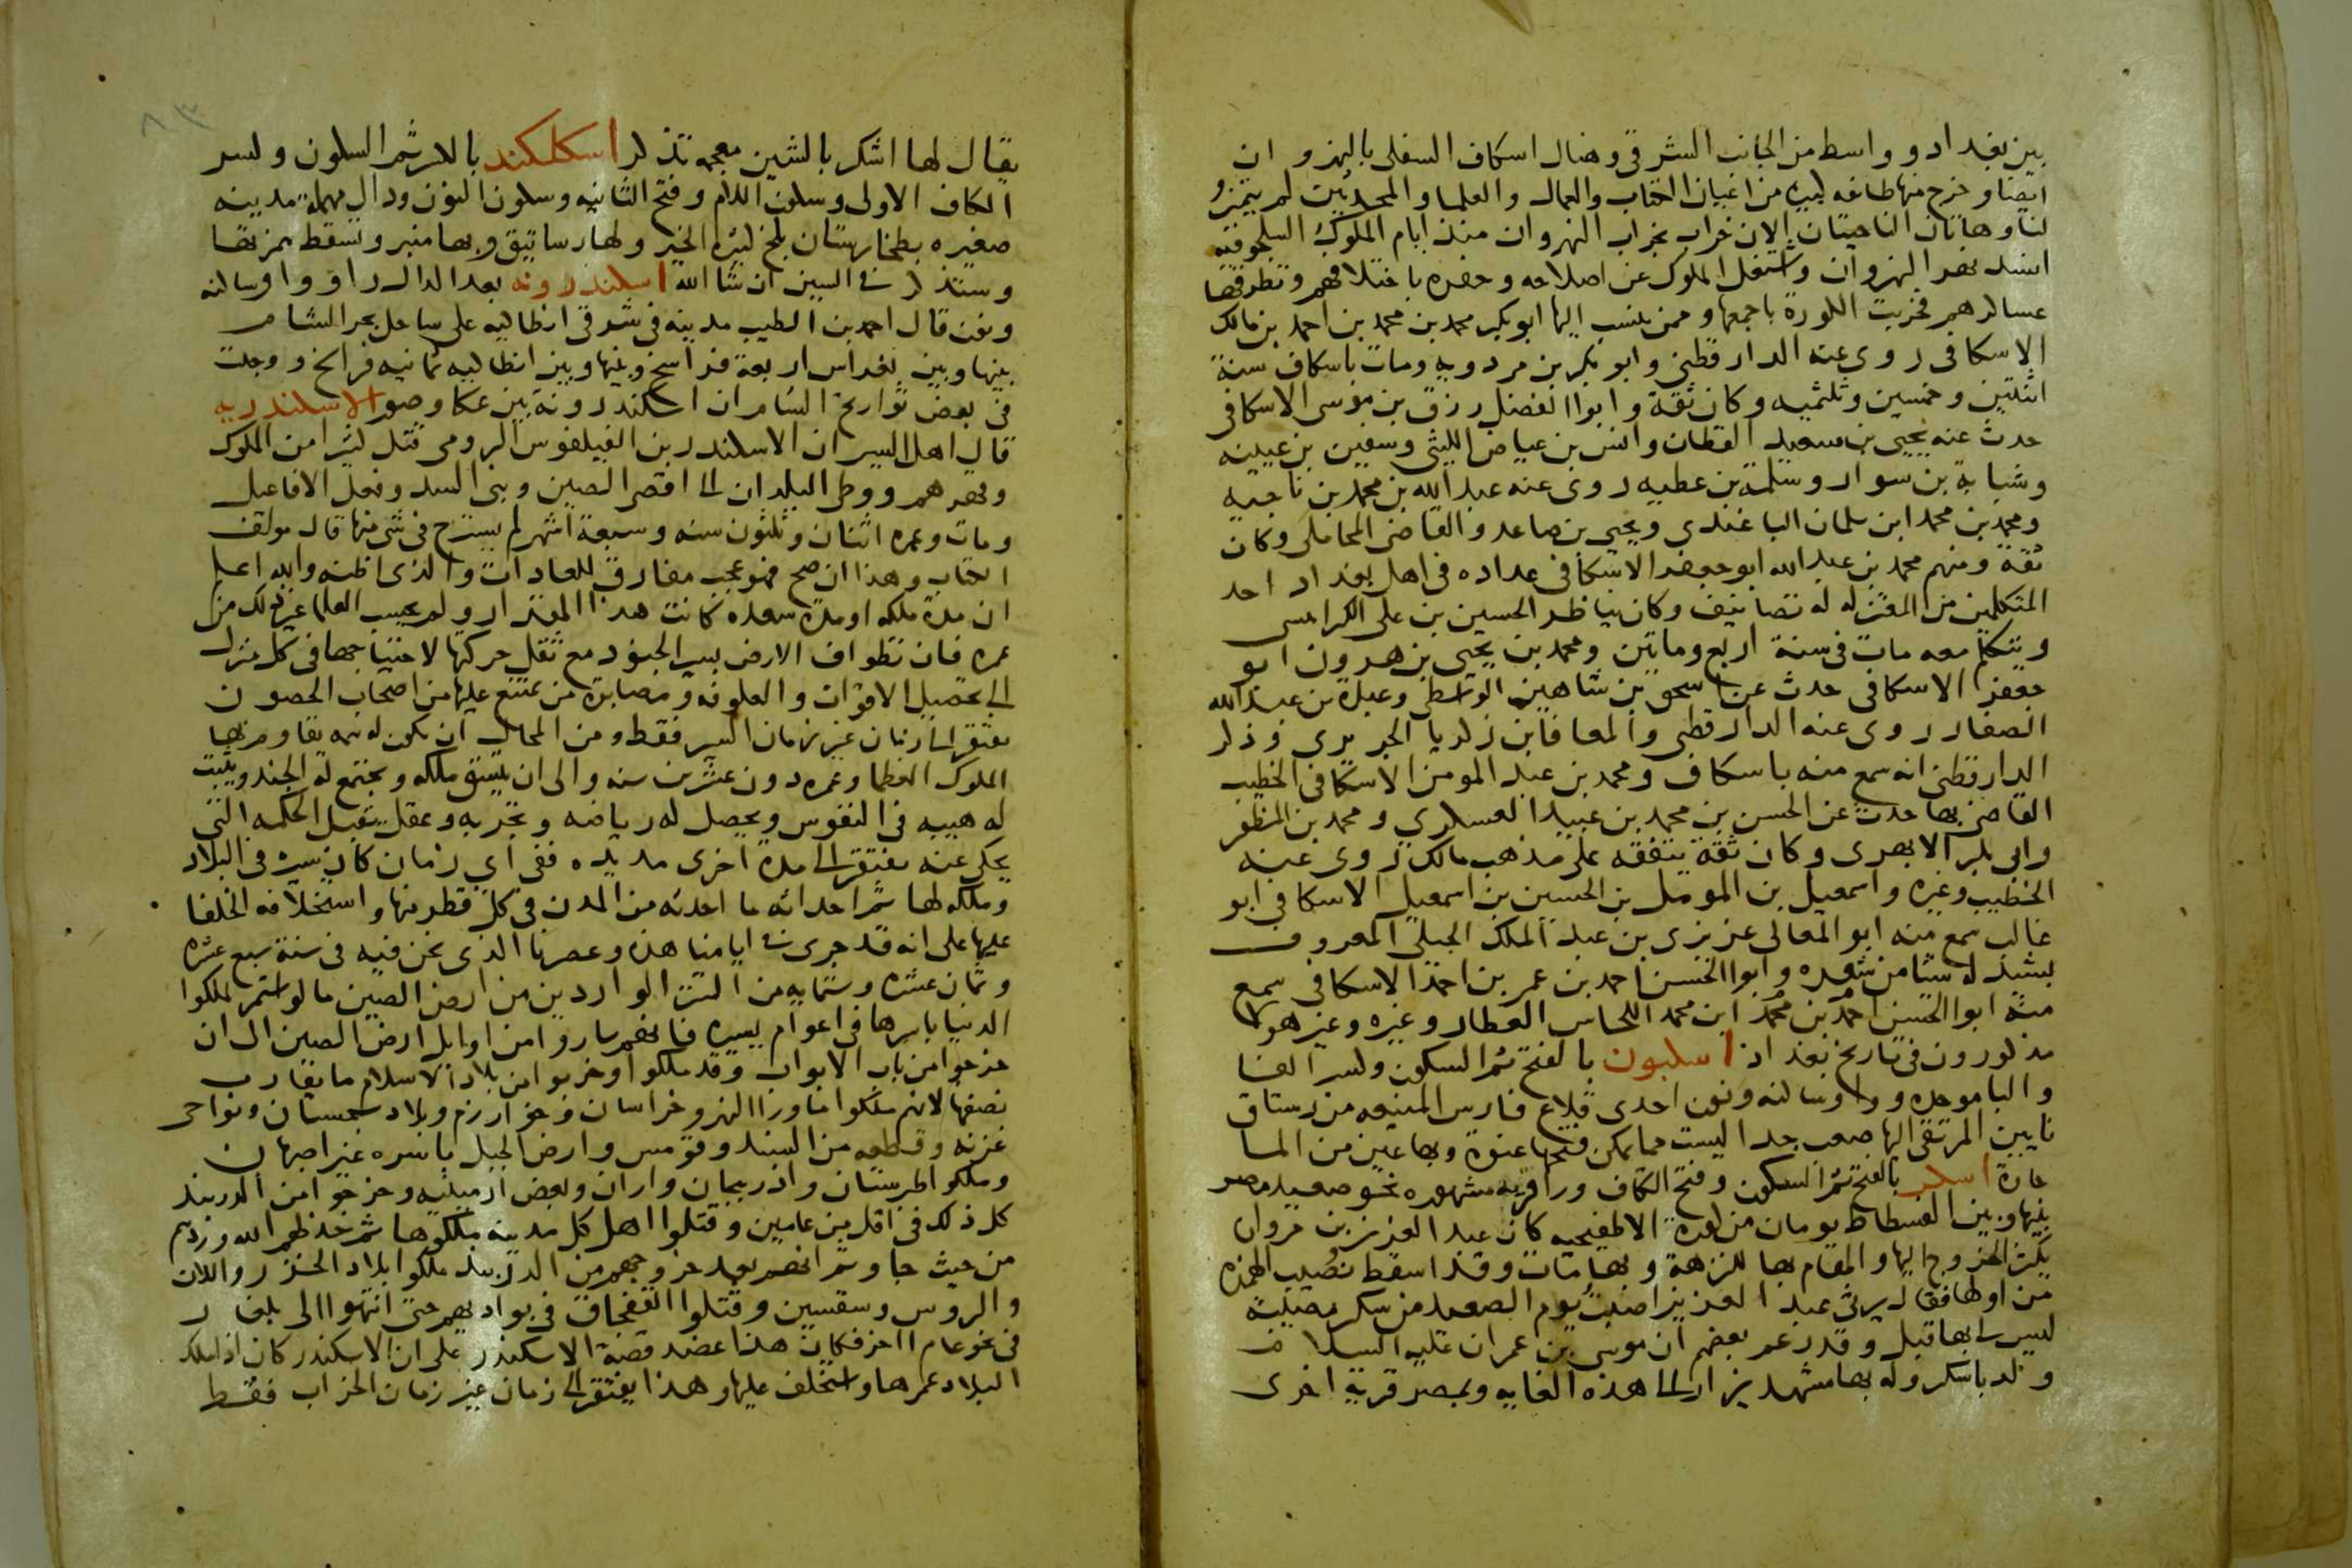 بين بغداد وواسط من الجانب الشرقي وهناك اسكاف السفلى بالنهروان
ايضا وخرج منها طائفه كثيره من اعيان الكتاب والعمال والعلما والمحدثين لم يتميزوا
لنا وهاتان الناحيتان الان خراب بخراب النهروان منذ ايام الملوك السلجوقيه
انسد نهر النهروان واشتغل الملوك عن اصلاحه وحفره باختلافهم وتطرقها
عساكرهم فخربت الكورة باجمعها وممن ينسب اليها ابو بكر محمد بن محمد بن احمد بن مالك
الاسكافى روى عنه الدارقطني وابو بكر بن مردويه ومات باسكاف سنة
اثنتين وخمسين وثلثميه وكان ثقة وابوا الفضل رزق بن موسى الاسكافى
حدث عنه يحيى بن سعيد القطان وانس بن عياض الليثى وسفين بن عيينه
وشبابة بن سوار وسلمة بن عطيه روى عنه عبد الله بن محمد بن ناجيه
ومحمد بن محمد ابن سلمان الباغندى ويحيى بن صاعد والقاضى المحاملى وكان
ثقة ومنهم محمد بن عبد الله ابو جعفر الاسكافى عداده فى اهل بغداد احد
المتكلمين من المعتزله له تصانيف وكان يناظر الحسين بن على الكرابيسى
ويتكلم معه مات فى سنة اربع وماتين ومحمد بن يحيى بن هرون ابو
جعفر الاسكافى حدث عن اسحق بن شاهين الواسطى وعبدة بن عبد الله
الصفار روى عنه الدارقطنى والمعافا بن زكريا الجريرى وذكر
الدارقطنى انه سمع منه باسكاف ومحمد بن عبد المومن الاسكافى الخطيب
القاضى بها حدث عن الحسن بن محمد بن عبيد العسكري ومحمد بن المظفر
وابى بكر الابهرى وكان ثقة يتفقه على مذهب مالك روى عنه
الخطيب وغيره واسمعيل بن المومل بن الحسين بن اسمعيل الاسكافى ابو
غالب سمع منه ابو المعالى عزيزى بن عبد الملك الجيلى المعروف
بشيذله شيا من شعره وابوا الحسن احمد بن عمر بن احمد الاسكافى سمع
منه ابوا الحسن احمد بن محمد ابن محمد النحاس العطار وغيره وغير هولا
مذكورون فى تاريخ بغداد اسكبون بالفتح ثم السكون وكسر الفا
والبا موحده وواو ساكنه ونون احدى قلاع فارس المنيعه من رستاق
نايين المرتقى اليها صعب جدا ليست مما يمكن فتحها عنوة وبها عين من الما
حارة اسكر بالفتح ثم السكون وفتح الكاف ورا قريه مشهوره نحو صعيد مصر
بينها وبين الفسطاط يومان من كورة الاطفيحيه كان عبد العزيز بن مروان
يكثر الخروج اليها والمقام بها للنزهة وبها مات وقد اسقط نصيب الهمزه
من اولها فقال يرثى عبد العزيز اصبت يوم الصعيد من سكر مصيبة
ليس لى بها قبل وقد زعم بعضهم ان موسى بن عمران عليه السلام
ولد باسكر وله بها مشهد يزار الى هذه الغايه وبمصر قرية اخرى
يقال لها اشكر بالشين معجمه تذكر اسكلكند بالكسر ثم السكون وكسر
الكاف الاولى وسكون اللام وفتح الثانيه وسكون النون ودال مهملة مدينه
صغيره بطخارستان بلخ كثيرة الخير ولها رساتيق وبها منبر وتسقط همزتها
وستذكر فى السين ان شا الله اسكندرونه بعد الدال را وواو ساكنه
ونون قال احمد بن الطيب مدينه فى شرقى انطاكيه على ساحل بحر الشام
بينها وبين بغراس اربعة فراسخ وبينها وبين انطاكيه ثمانيه فراسخ ووجدت
فى بعض تواريخ الشام ان اسكندرونة بين عكا وصور الاسكندريه
قال اهل السير ان الاسكندر بن الفيلفوس الرومى قتل كثيرا من الملوك
وقهرهم ووطى البلدان الى اقصى الصين وبنى السد وفعل الافاعيل
ومات وعمره اثنتان وثلثون سنه وسبعة اشهر لم يسترح فى شى منها قال مولف
الكتاب وهذا ان صح فهو عجيب مفارق للعادات والذى اظنه والله اعلم
ان مدة ملكه او مدة سعده كانت هذا المقدار ولم يحسب العلما غير ذلك من
عمره فان تطواف الارض بسير الجنود مع ثقل حركتها لاحتياجها فى كل منزل
الى تحصيل الاقوات والعلوفه ومصابرة من يمتنع عليها من اصحاب الحصون
يفتقر الى زمان غير زمان السير فقط ومن المحال ان يكون له همه يقاوم بها
الملوك العظما وعمره دون عشرين سنه والى ان يتسق ملكه ويجتمع له الجند ويثبت
له هيبه فى النفوس ويحصل له رياضه وتجربه وعقل يقبل الحكمه التى
يحكى عنه يفتقر الى مدة اخرى مديده ففى اى زمان كان سيره فى البلاد
وملكه لها ثم احداثه ما احدثه من المدن فى كل قطر منها واستخلافه الخلفا
عليها على انه قد جرى فى ايامنا هذه وعصرنا الذى نحن فيه فى سنة سبع عشره
وثمان عشره وستمايه من التتر الواردين من ارض الصين ما لو استمر لملكوا
الدنيا باسرها فى اعوام يسيره فانهم ساروا من اوايل ارض الصين الى ان
خرجوا من باب الابواب وقد ملكوا وخربوا من بلاد الاسلام ما يقارب
نصفها لانهم ملكوا ما ورا النهر وخراسان وخوارزم وبلاد سجستان ونواحى
غزنه وقطعه من السند وقومس وارض الجبل باسره غير اصبهان
وملكوا طبرستان واذربيجان واران وبعض ارمينيه وخرجوا من الدربند
كل ذلك فى اقل من عامين وقتلوا اهل كل مدينه ملكوها ثم خذلهم الله وردهم
من حيث جاوا ثم انهم بعد خروجهم من الدربند ملكوا بلاد الخزر واللان
والروس وسقسين وقتلوا القفجاق فى بواديهم حتى انتهوا الى بلغار
فى نحو عام اخر فكان هذا عضد قصة الاسكندر على ان الاسكندر كان اذا ملك
البلاد عمرها واستخلف عليها وهذا يفتقر الى زمان غير زمان الخراب فقط